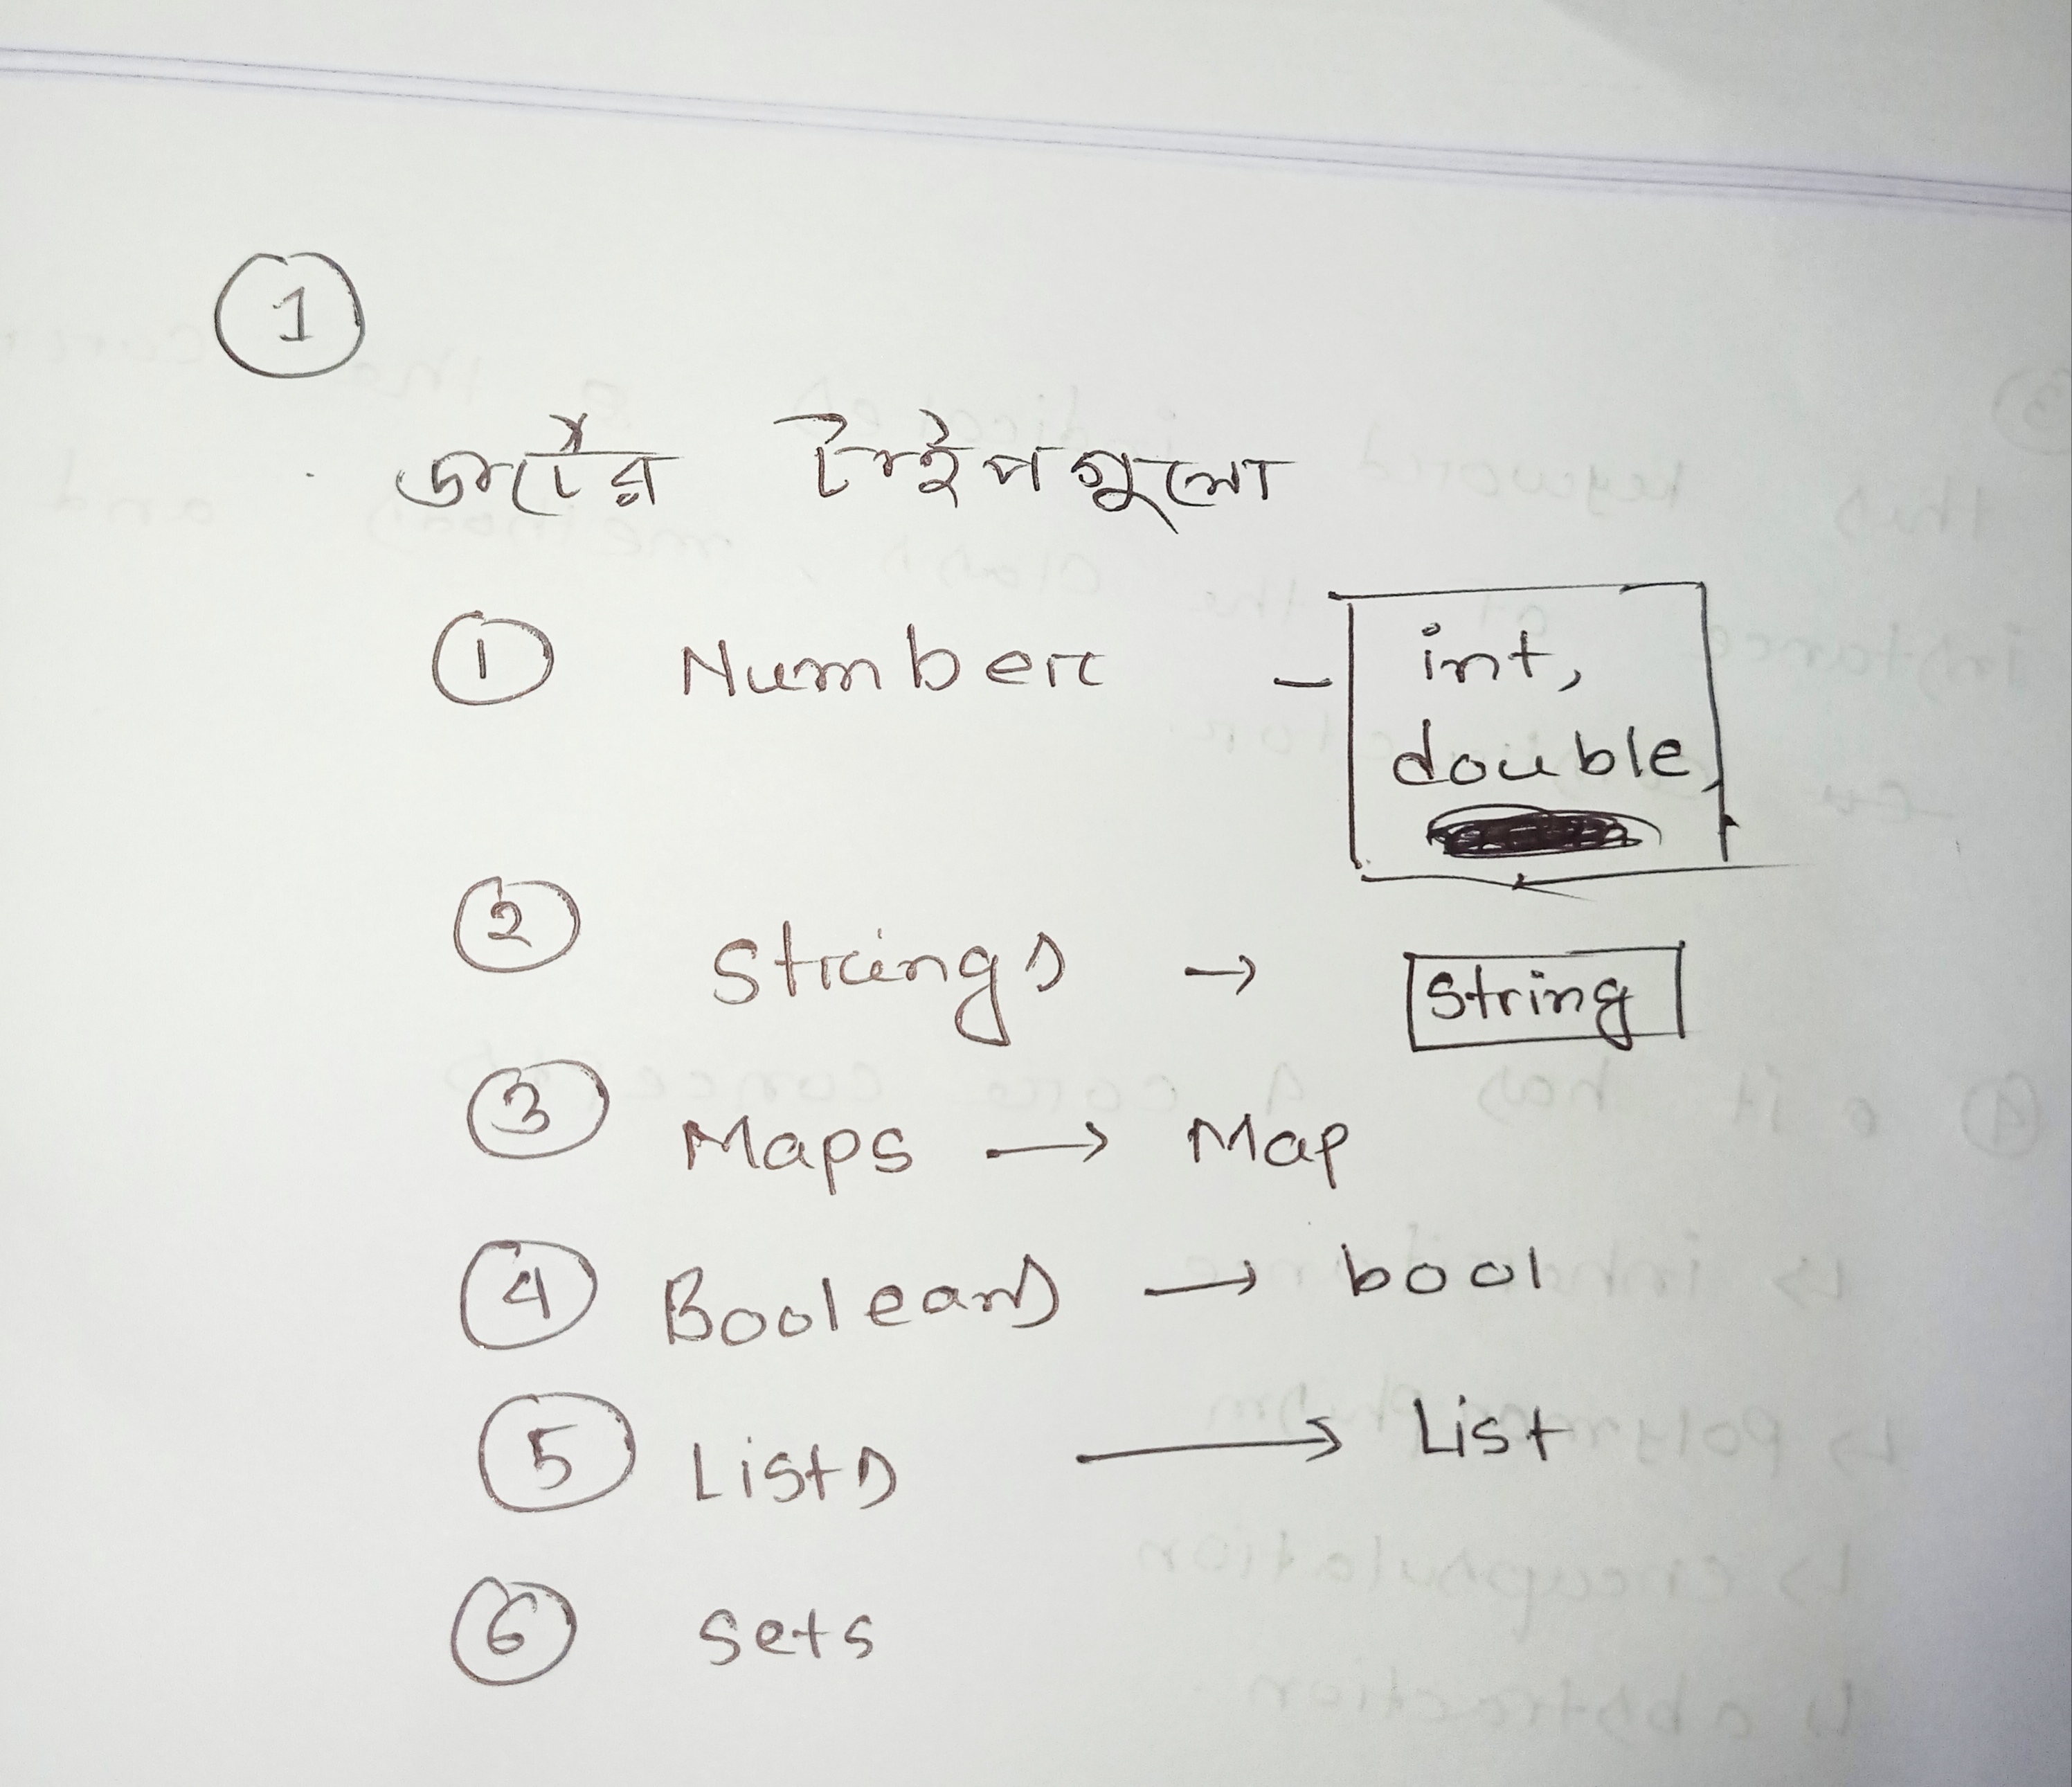 1
ডার্টের টাইপগুলো
1 Number - int,
double,
2 Strings → String
3 Maps → Map
4 Booleans → bool
5 Lists → List
6 Sets